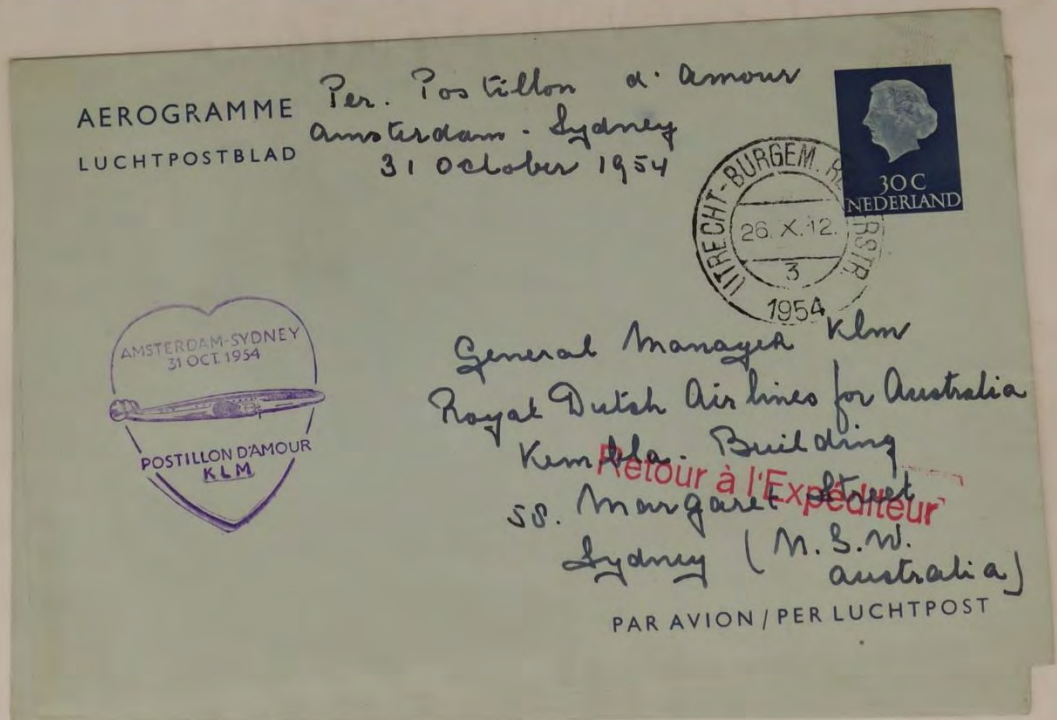 AEROGRAMME
LUCHTPOSTBLAD
Per. Postillon d'amour
Amsterdam - Sydney
31 October 1954
30 C
NEDERLAND
UTRECHT-BURGEM.
26. X. 12.
3
1954
AMSTERDAM-SYDNEY
31 OCT. 1954
POSTILLON D'AMOUR
KLM
General Manager Klm
Royal Dutch Air lines for Australia
Kembla. Building
58. Margaret Street
Sydney (N.S.W.
Australia)
Retour à l'Expéditeur
PAR AVION / PER LUCHTPOST